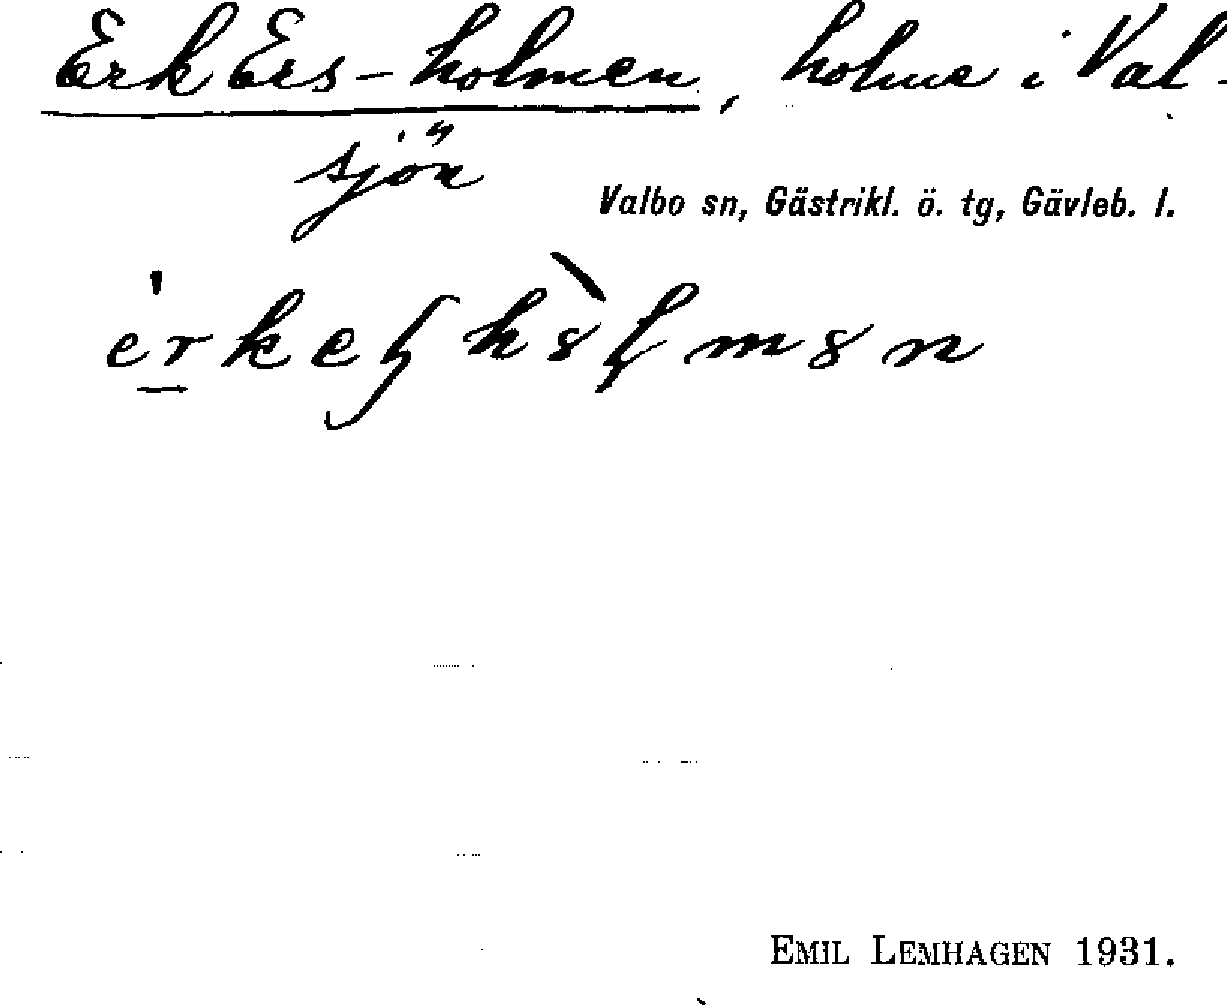 Erk Ers-holmen, holme i Val-
sjön
Valbo sn, Gästrikl. ö. tg, Gävleb. l.
EMIL LEMHAGEN 1931.